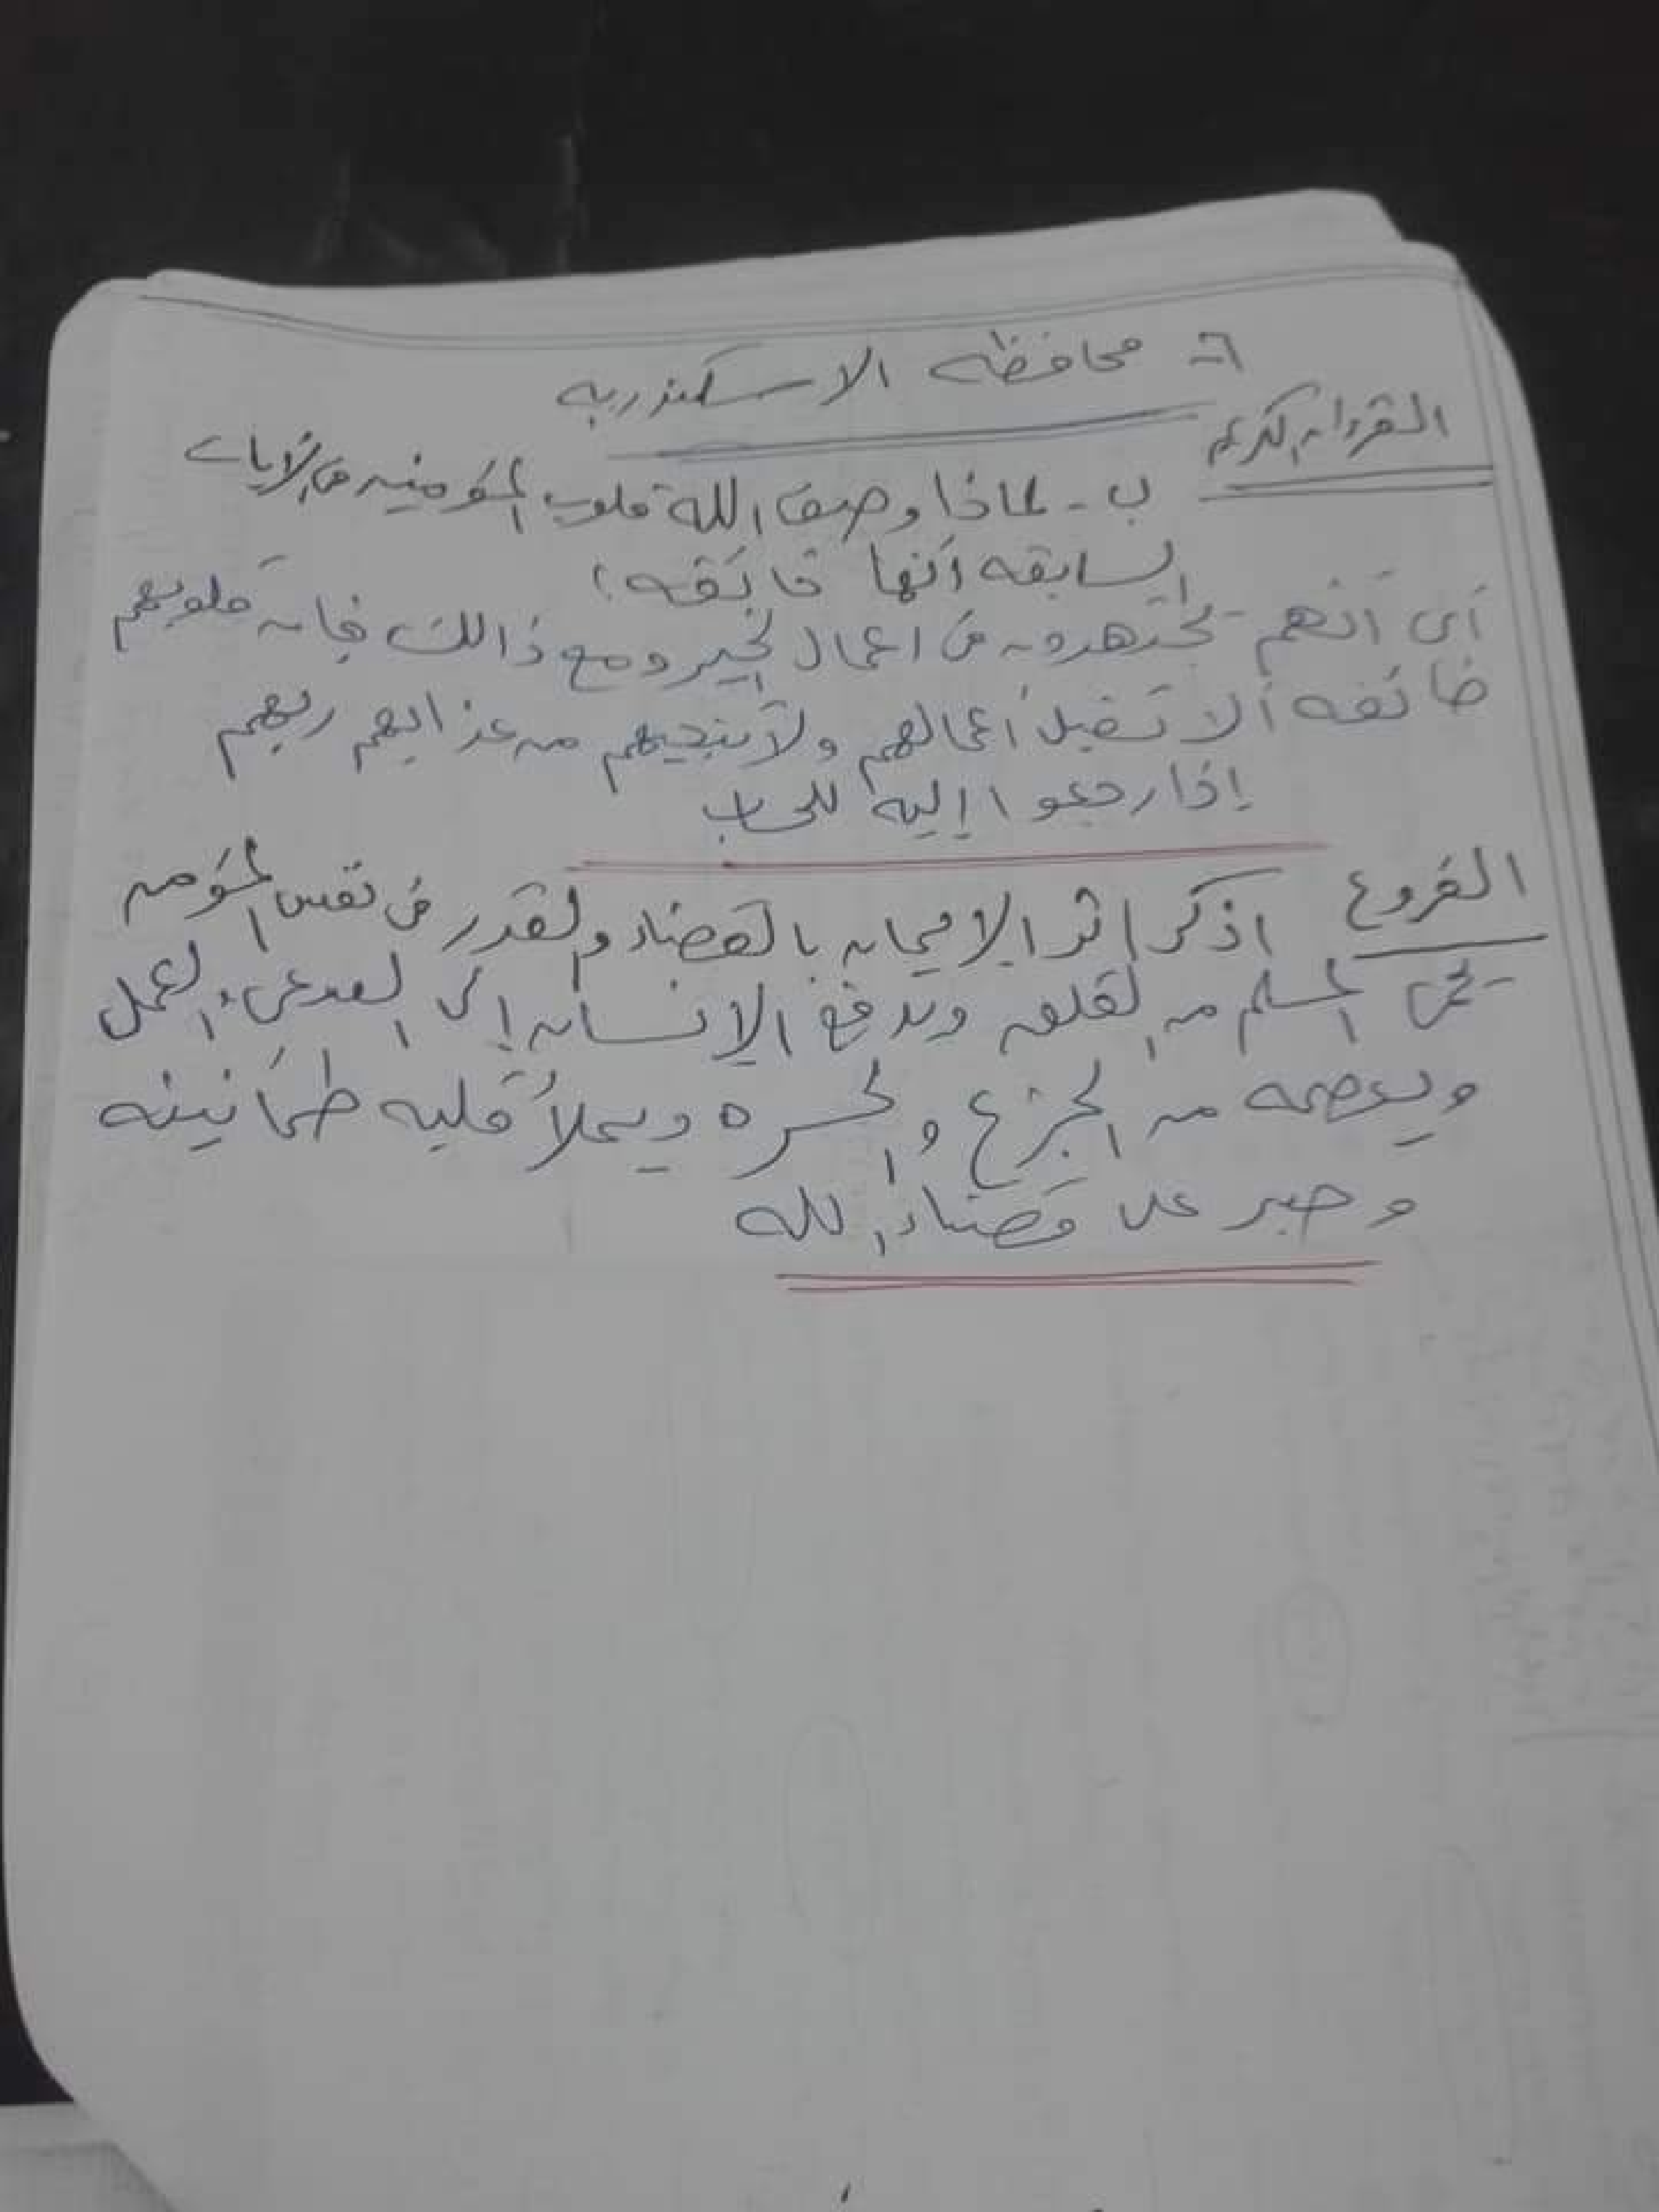 ٦- محافظه الاسكندريه
القرءان الكريم
ب - لماذا وصف الله قلوب المؤمنين فى الايات
السابقه أنها خائفه؟
أى أنهم يجتهدون فى اعمال الخير ومع ذالك فإن قلوبهم
خائفه ألا تقبل أعمالهم ولا تنجيهم من عذابهم ربهم
إذا رجعوا إليه للحساب
الفروع اذكر اثر الايمان بالقضاء والقدر فى نفس المؤمن
يحمى المسلم من القلق ويدفع الإنسان إلى السعى والعمل
ويعصمه من الجزع والحسره ويملأ قلبه طمأنينه
وصبر على قضاء الله